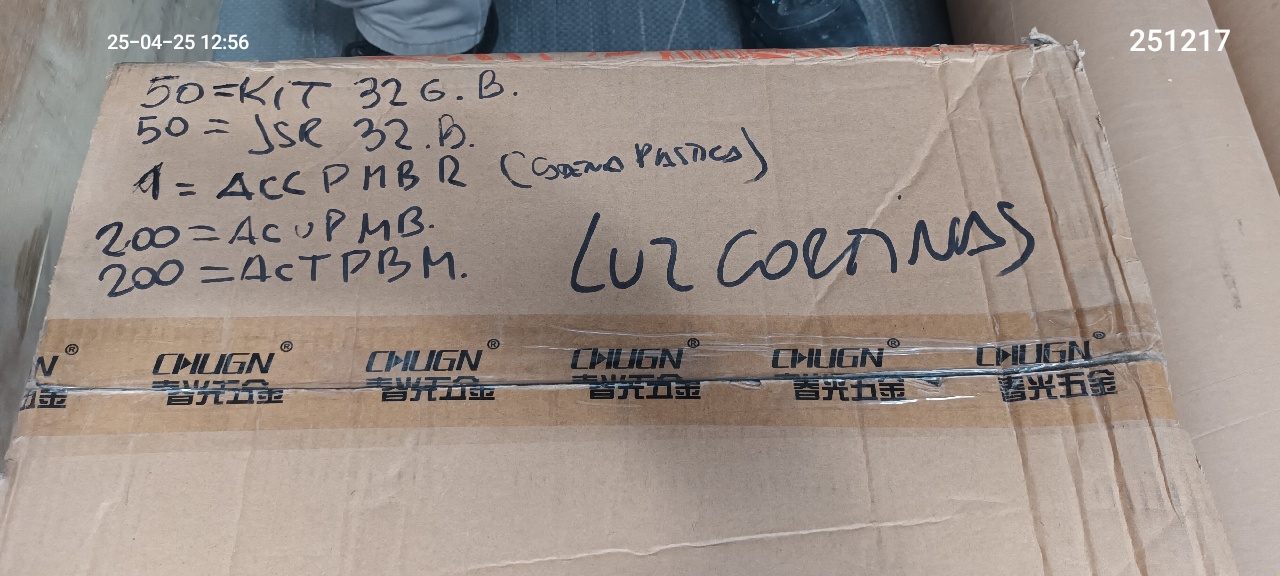 25-04-25 12:56
251217
50=KIT 32 G.B.
50= JSR 32.B.
1= ACC PMBR (CADENA PLASTICA)
200=ACUPMB.
200=ACTPBM.
LUZ CORTINAS
N® CHUGN® CHUGN® CHUGN® CHUGN® CHUGN®
五金 春光五金 春光五金 春光五金 春光五金 春光五金